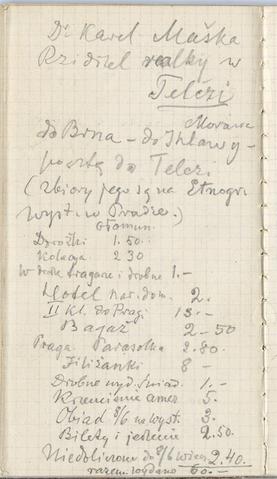 Dr Karel Maška
Rziditel realky w
Telezi
Morawa
do Brna - do Ihlawy -
pocztą do Telezi
(zbiory jego są na Etnogr.
wyst. w Pradze.)
Ołomun.
Drożki 1.50
Kolacya 2 30
w drodze tragarze i drobne 1.-
Hotel nar. dom. 2.
II kl. do Pragi 13.-
Bagaż 2-50
Praga. Parasolka 2.80.
Filiżanki 8 -
Drobne wyd. śniad. 1.-
Krzemienne amer. 5.
Obiad 8/6 na wyst. 3.
Bilety i jedzenie 2.50.
Niedoliczone do 8/6 wiecz. 2.40.
razem wydano 60.-